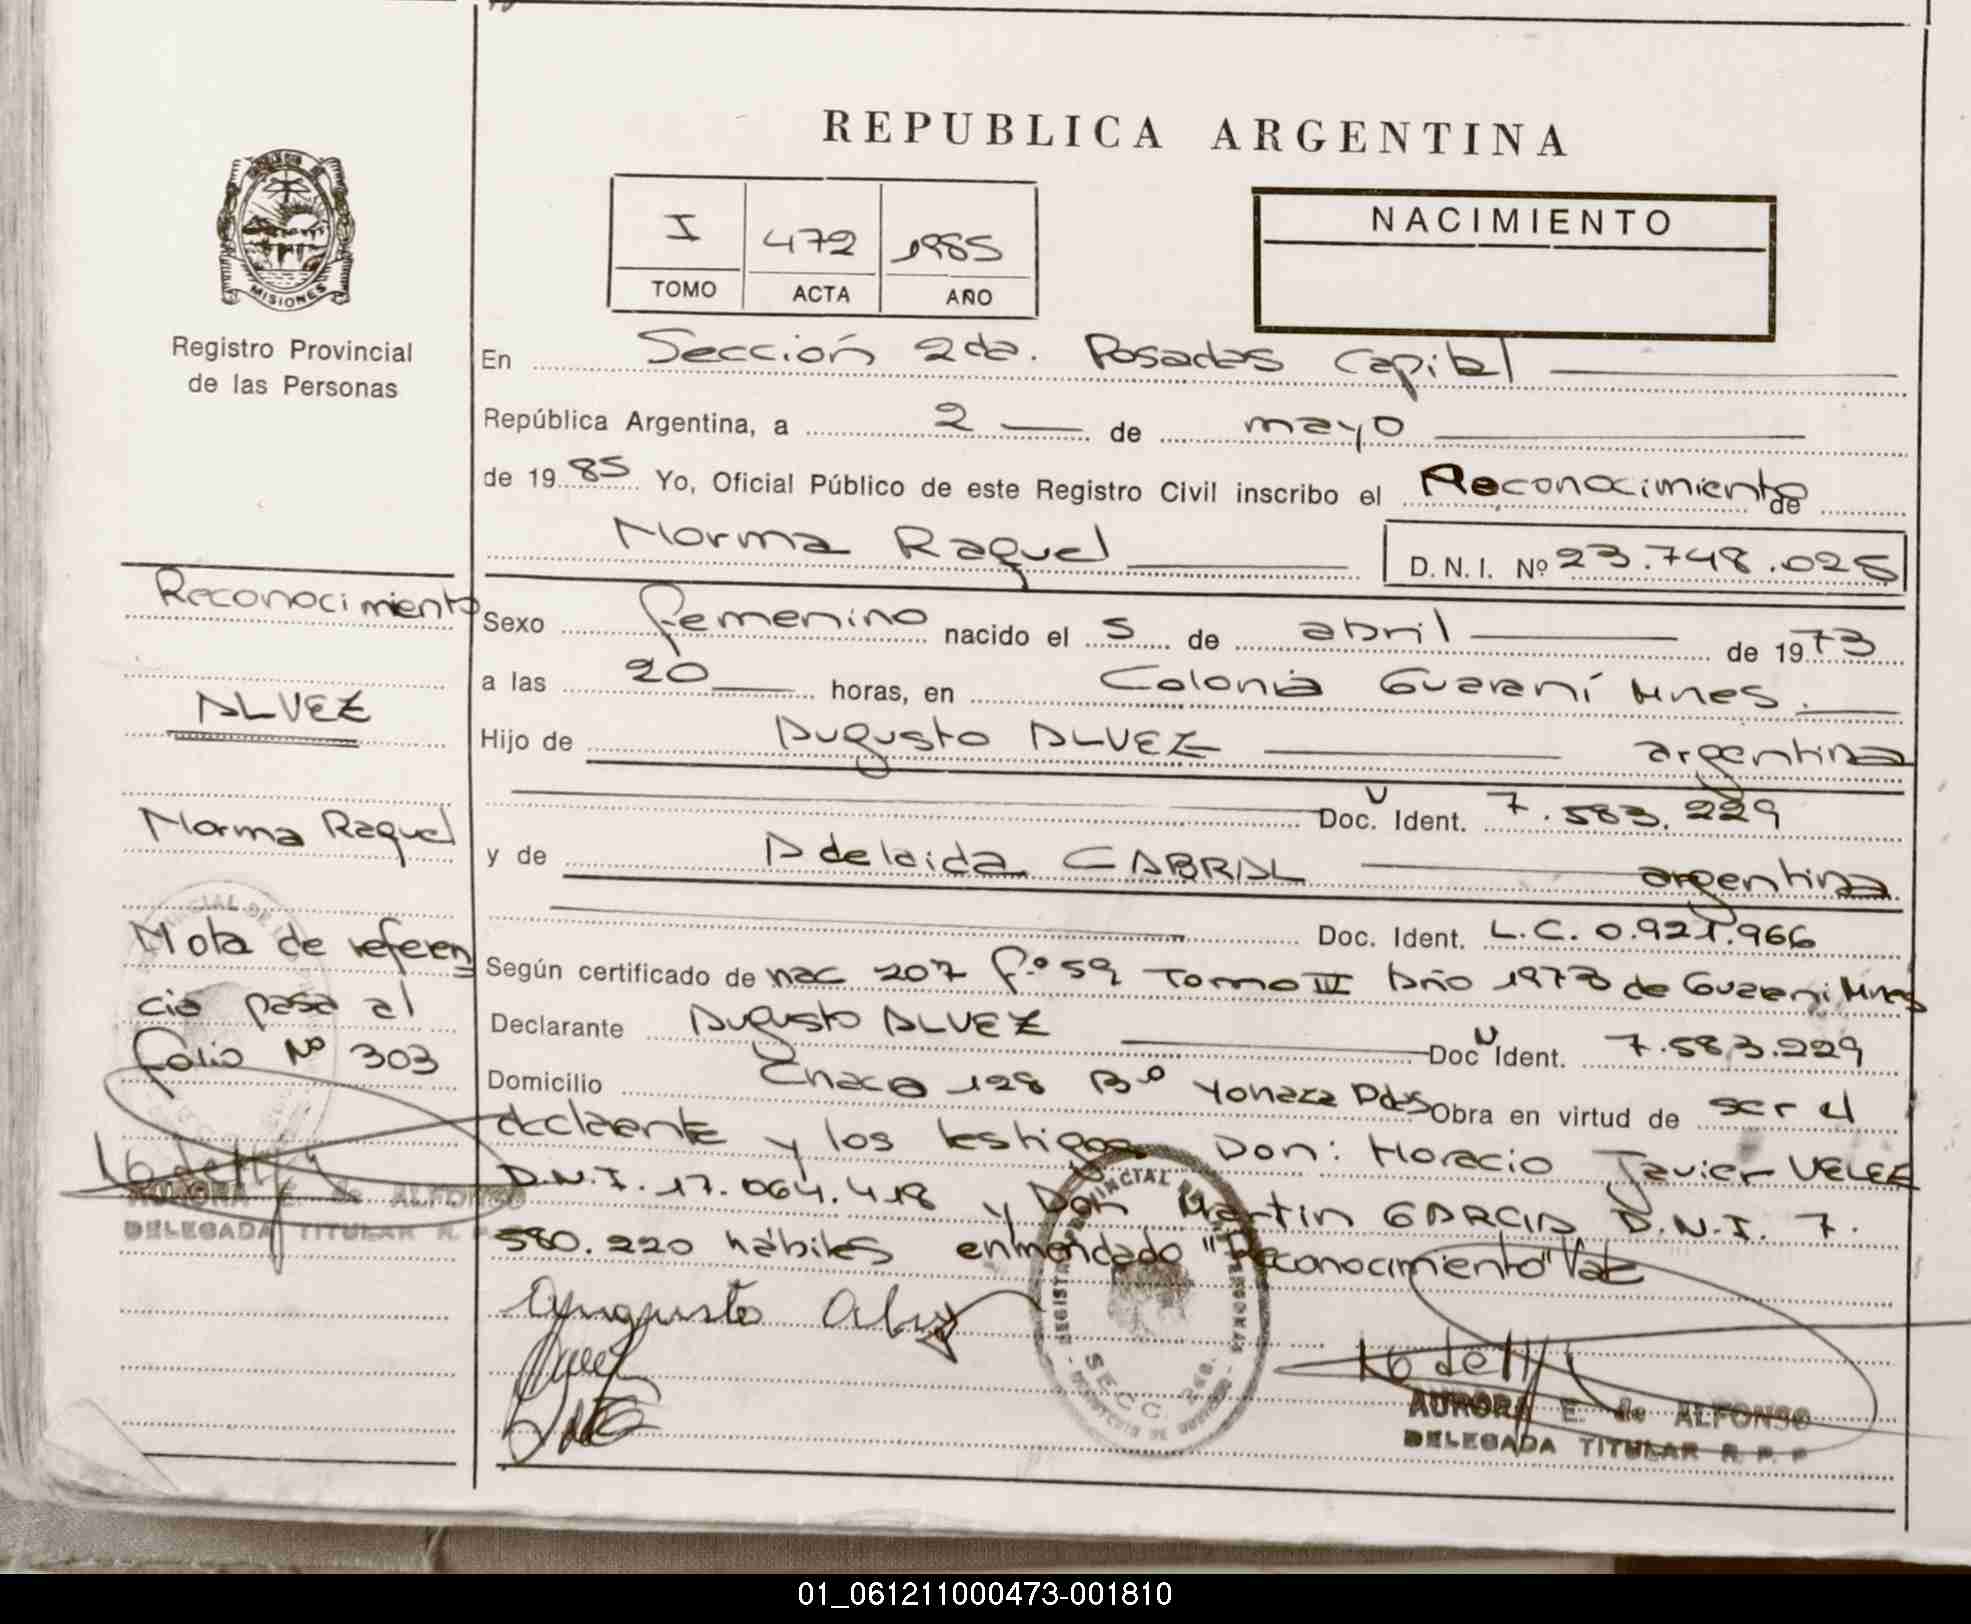 REPUBLICA ARGENTINA
I 472 1985
TOMO ACTA AÑO
NACIMIENTO
MISIONES
Registro Provincial
de las Personas
En Sección 2da. Posadas Capital
República Argentina, a 2 de mayo
de 1985 Yo, Oficial Público de este Registro Civil inscribo el Reconocimiento de
Norma Raquel D.N.I. Nº 23.748.025
Sexo femenino nacido el 5 de abril de 1973
a las 20 horas, en Colonia Guaraní Mnes.
Hijo de Augusto ALVEZ argentina
Doc. U Ident. 7.583.229
y de Adelaida CABRAL argentina
Doc. Ident. L.C. 0.921.966
Según certificado de nac 207 fº 59 Tomo IV Año 1973 de Guaraní Mnes
Declarante Augusto ALVEZ Doc U Ident. 7.583.229
Domicilio 128 Bº Pdas Obra en virtud de ser el
declarante y los testigos Don: Horacio Javier VELEZ
D.N.I. 17.064.418 y Don Martin GARCIA D.N.I. 7.
580.220 hábiles enmendado "Reconocimiento" Vale
Reconocimiento
ALVEZ
Norma Raquel
Nota de referen
cia pasa al
folio Nº 303
AURORA E. de ALFONSO
DELEGADA TITULAR R. P.
AURORA E. de ALFONSO
DELEGADA TITULAR R. P. P
01_061211000473-001810